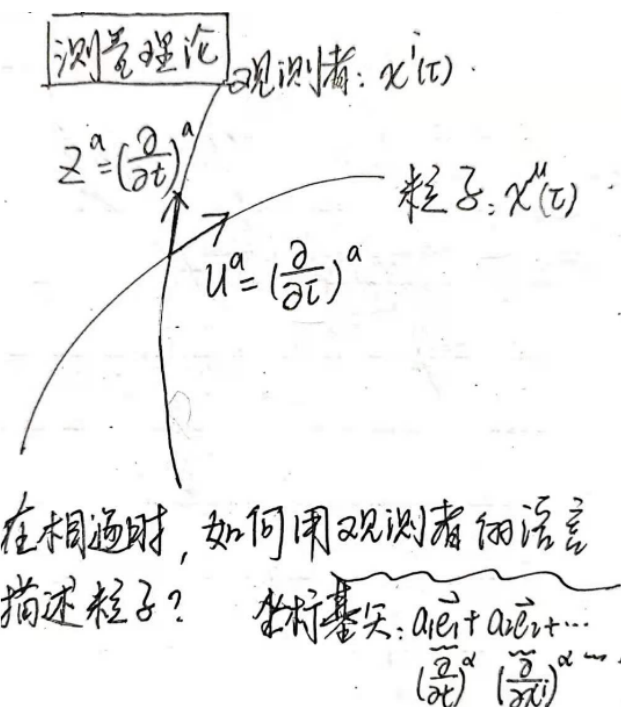 测量理论
观测者: xⁱ(τ).
Zᵃ=(∂/∂t)ᵃ
粒子: x^μ(τ)
Uᵃ=(∂/∂τ)ᵃ
在相遇时, 如何用观测者的语言
描述粒子? 坐标基矢: a₁e⃗₁+a₂e⃗₂+…
(∂/∂t)^α (∂/∂xⁱ)^α …